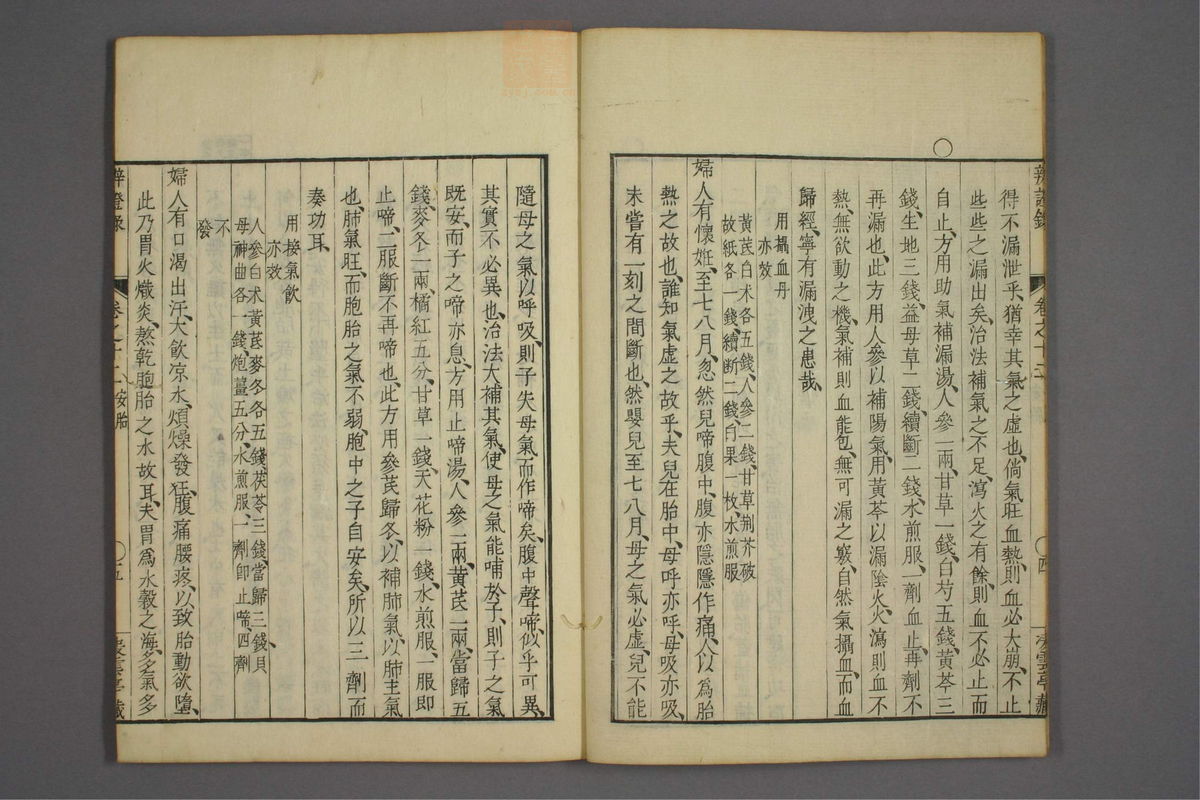 得不漏泄乎、猶幸其氣之虛也、倘氣旺血熱、則血必大崩、不止
些些之漏出矣、治法補氣之不足、瀉火之有餘、則血不必止而
自止、方用助氣補漏湯、人參一兩、甘草一錢、白芍五錢、黃芩三
錢、生地三錢、益母草二錢、續斷二錢、水煎服、一劑血止、再劑不
再漏也、此方用人參以補陽氣、用黃芩以漏陰火、火瀉則血不
熱、無欲動之機、氣補則血能包、無可漏之竅、自然氣攝血、而血
歸經、寧有漏洩之患哉、
用攝血丹
亦效
黃芪白术各五錢、人參二錢、甘草荆芥破
故紙各一錢、續斷二錢、白果一枚、水煎服
婦人有懷姙至七八月、忽然兒啼腹中、腹亦隱隱作痛、人以為胎
熱之故也、誰知氣虛之故乎、夫兒在胎中、母呼亦呼、母吸亦吸、
未嘗有一刻之間斷也、然嬰兒至七八月、母之氣必虛、兒不能
隨母之氣以呼吸、則子失母氣而作啼矣、腹中聲啼似乎可異、
其實不必異也、治法大補其氣、使母之氣能哺於子、則子之氣
既安、而子之啼亦息、方用止啼湯、人參一兩、黃芪一兩、當歸五
錢、麥冬一兩、橘紅五分、甘草一錢、天花粉一錢、水煎服、一服即
止啼、二服斷不再啼也、此方用參芪歸冬、以補肺氣、以肺主氣
也、肺氣旺、而胞胎之氣不弱、胞中之子自安矣、所以三劑而
奏功耳、
用接氣飲
亦效
人參白术黃芪麥冬各五錢茯苓三錢、當歸三錢、貝
母神曲各一錢、炮薑五分、水煎服、一劑卽止啼、四劑
不
發
婦人有口渴出汗、大飲凉水、煩燥發狂、腹痛腰疼、以致胎動欲墮、
此乃胃火熾炎、熬乾胞胎之水故耳、夫胃為水穀之海、多氣多
卷之十二 安胎